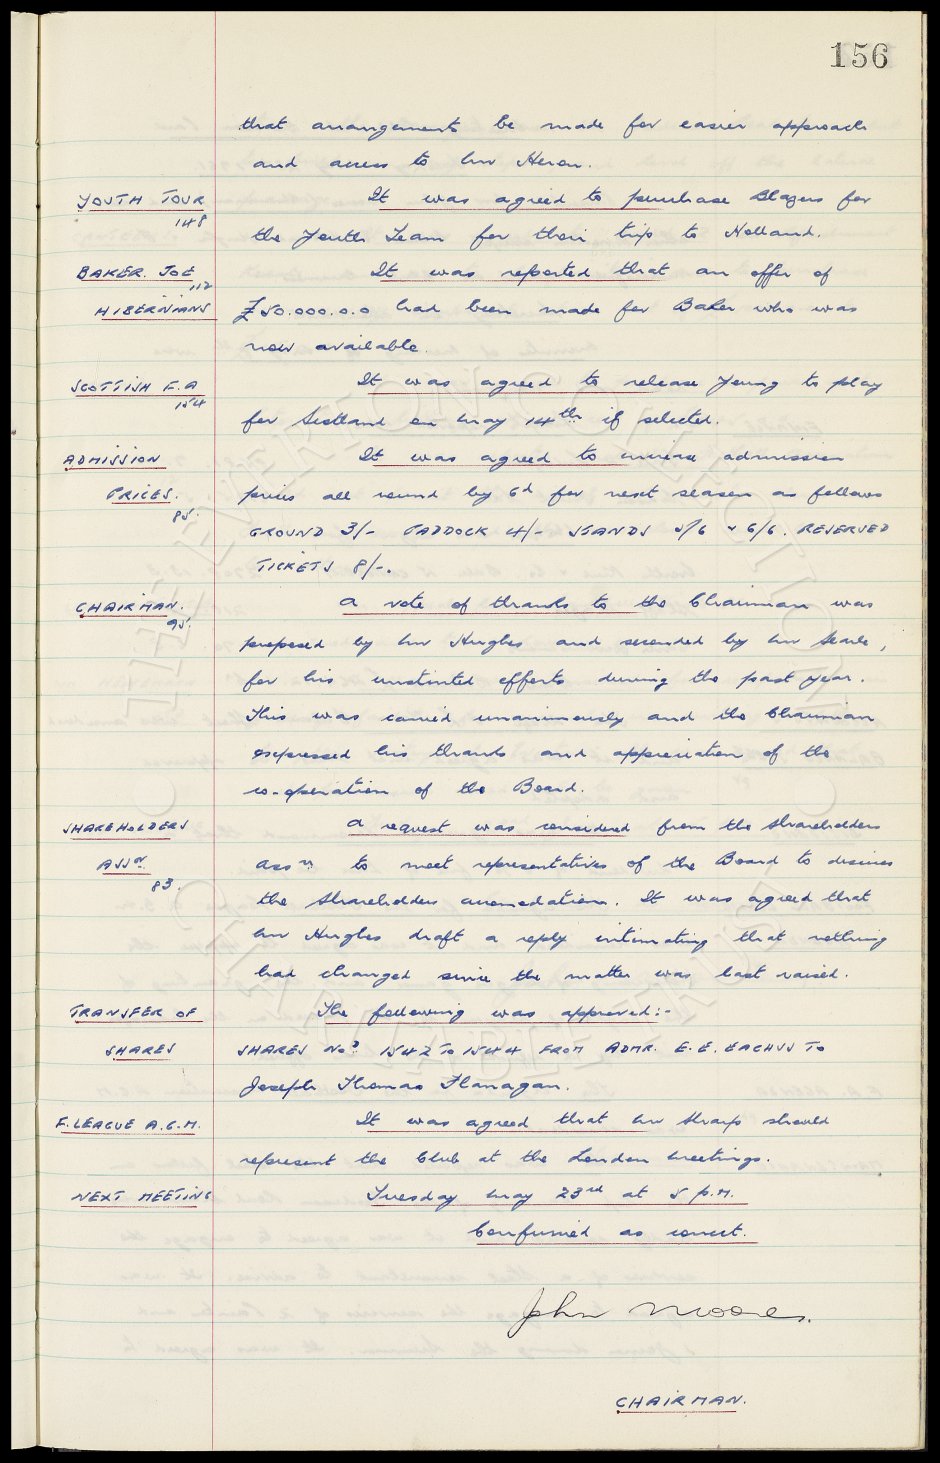 156
that arrangements be made for easier approach
and access to Mr Heron.
YOUTH TOUR It was agreed to purchase Blazers for
148
the Youth Team for their trip to Holland.
BAKER. JOE It was reported that an offer of
112
HIBERNIANS £50.000.0.0 had been made for Baker who was
now available.
SCOTTISH F.A It was agreed to release Young to play
154
for Scotland on May 14th if selected.
ADMISSION It was agreed to increase admission
PRICES. prices all round by 6d for next season as follows
85.
GROUND 3/- PADDOCK 4/- STANDS 5/6 & 6/6. RESERVED
TICKETS 8/-.
CHAIRMAN. A vote of thanks to the Chairman was
95.
proposed by Mr Hughes and seconded by Mr Searle,
for his unstinted efforts during the past year.
This was carried unanimously and the Chairman
expressed his thanks and appreciation of the
co-operation of the Board.
SHAREHOLDERS A request was considered from the Shareholders
ASSN. Assn to meet representatives of the Board to discuss
83.
the Shareholders accomodation. It was agreed that
Mr Hughes draft a reply intimating that nothing
had changed since the matter was last raised.
TRANSFER OF The following was approved:-
SHARES SHARES Nos 1542 TO 1544 FROM ADMR. E.E. EACHUS TO
Joseph Thomas Flanagan.
F. LEAGUE A.G.M. It was agreed that Mr Sharp should
represent the Club at the London meetings.
NEXT MEETING Tuesday May 23rd at 5 p.m.
Confirmed as correct.
John Moores.
CHAIRMAN.